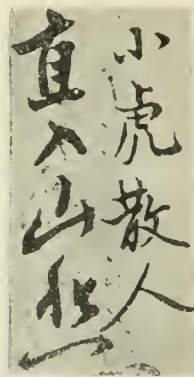 小虎散人
直入山